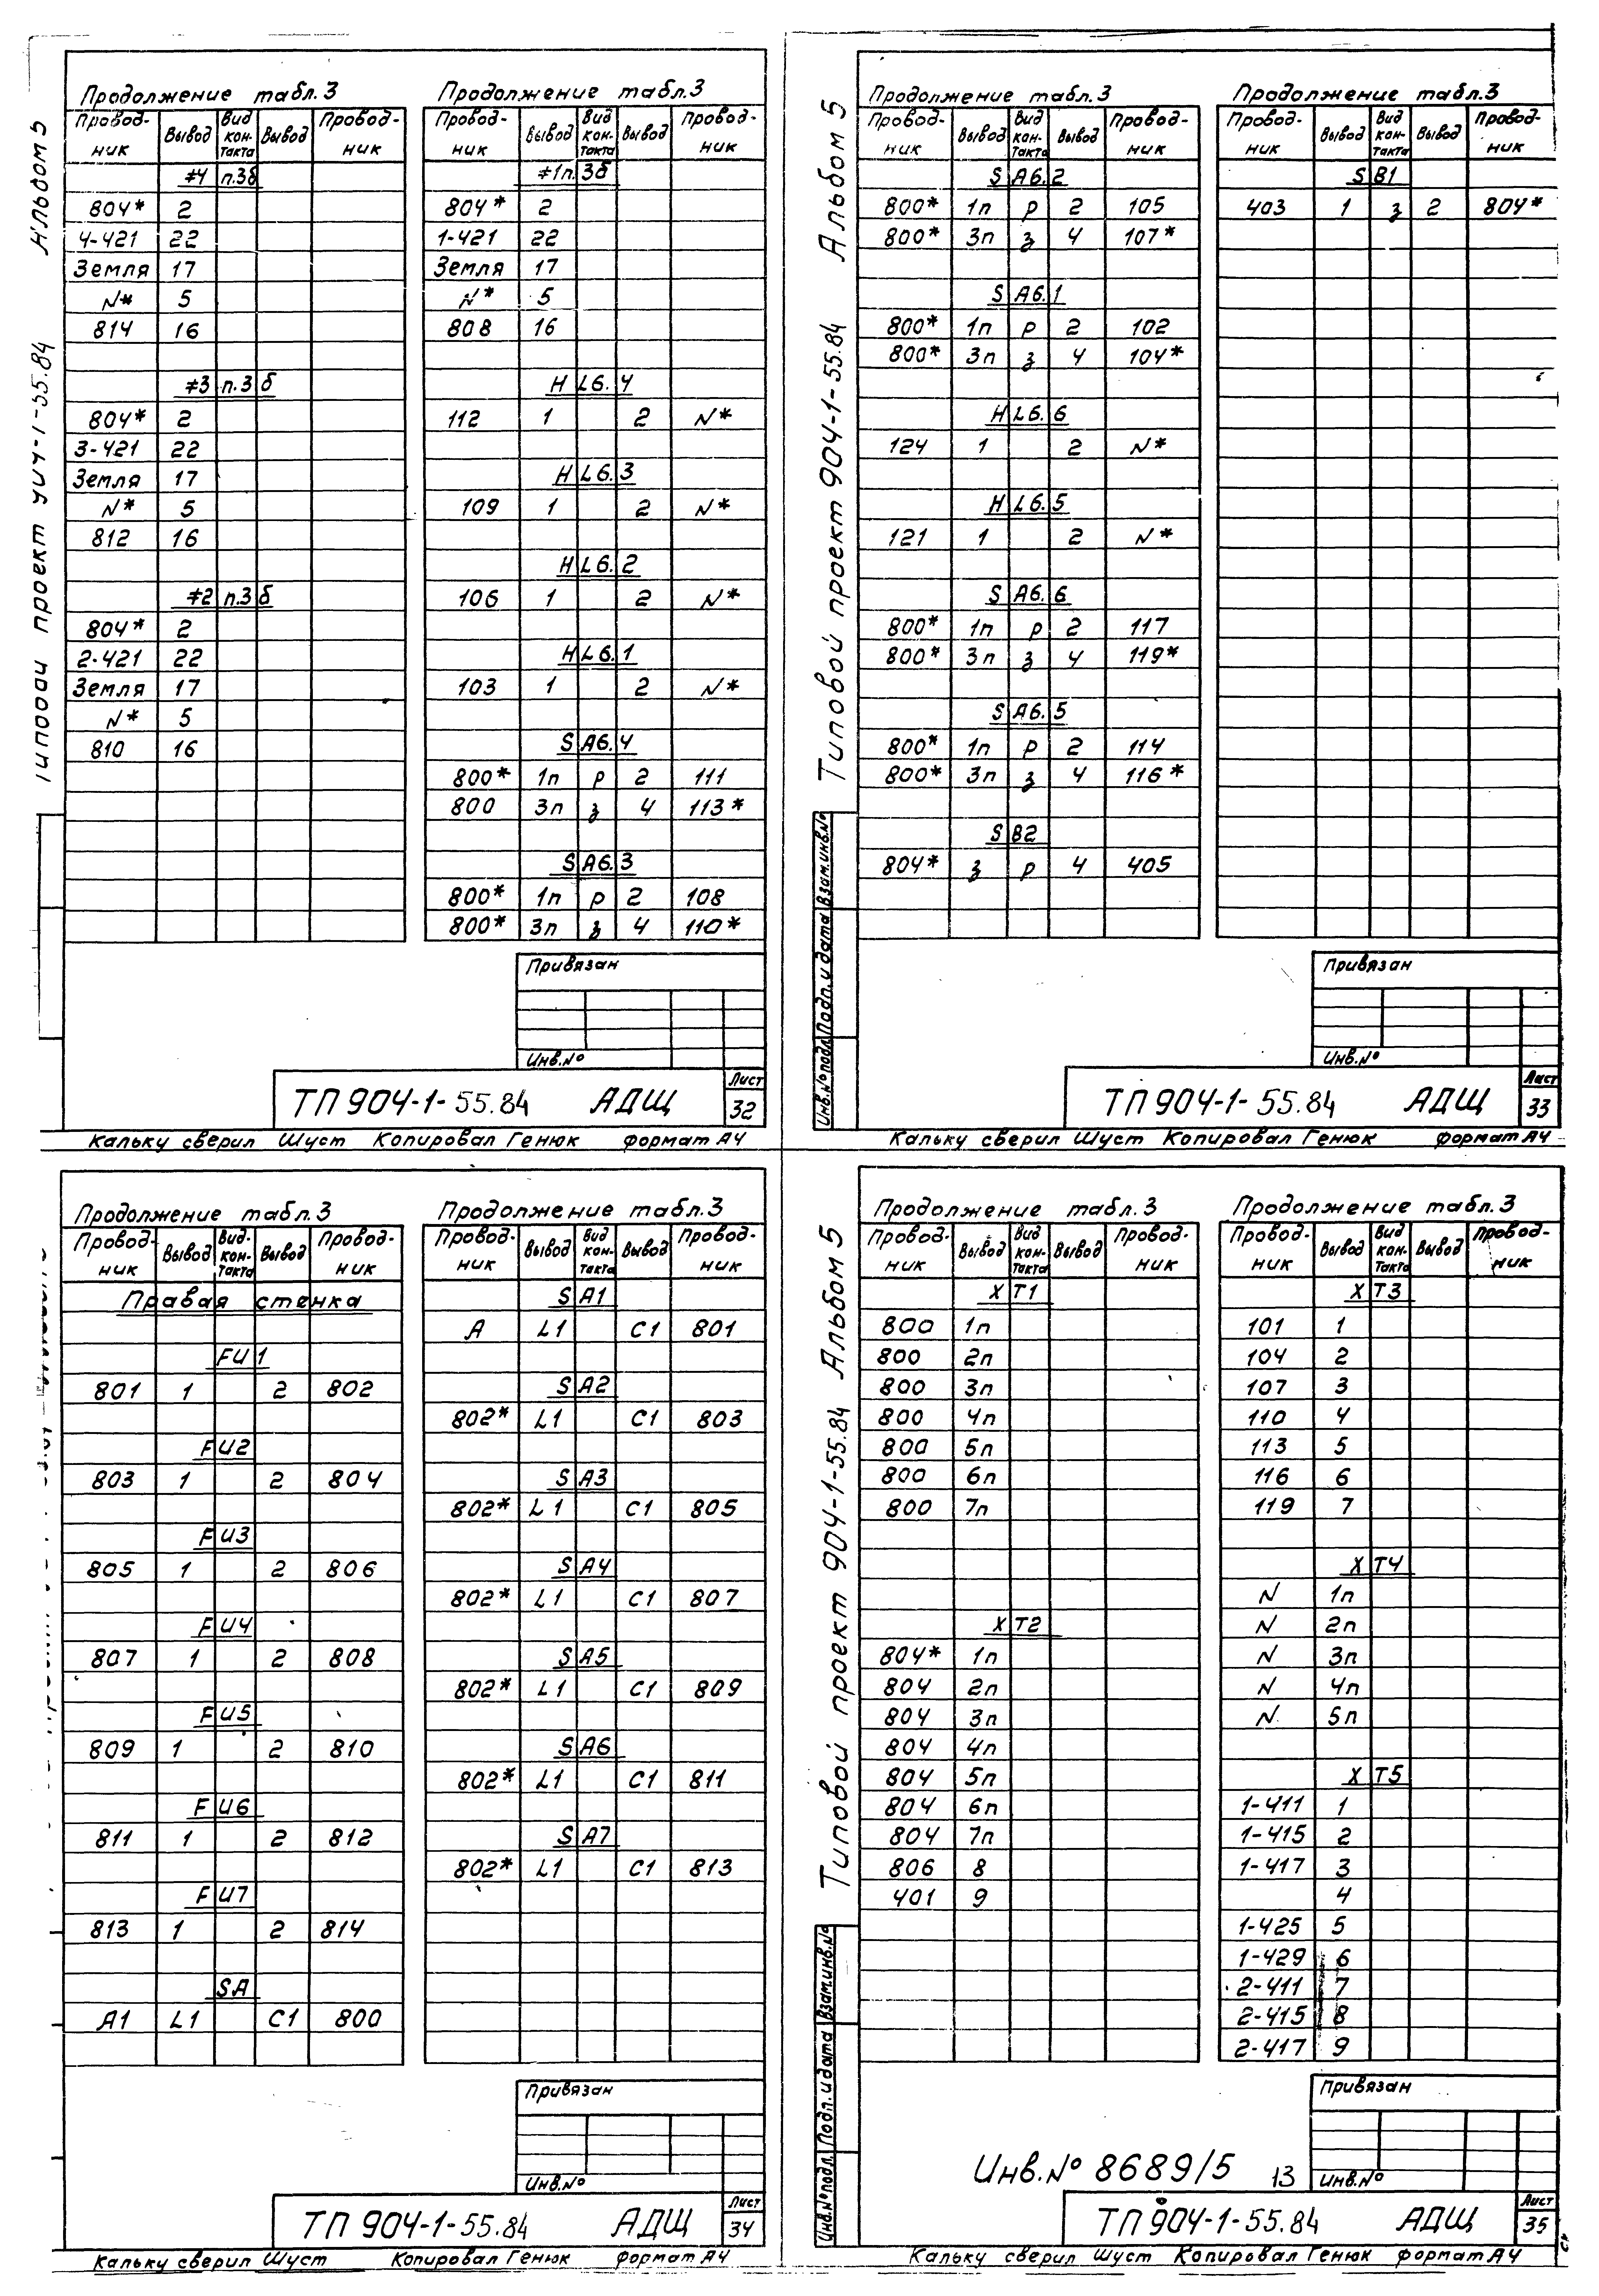 Альбом 5
проект
Продолжение табл.3
Провод-ник Вывод Вид кон-такта Вывод Провод-ник
#4 п.3б
804* 2
4-421 22
Земля 17
N* 5
814 16
#3 п.3б
804* 2
3-421 22
Земля 17
N* 5
812 16
#2 п.3б
804* 2
2-421 22
Земля 17
N* 5
810 16
Продолжение табл.3
Провод-ник Вывод Вид кон-такта Вывод Провод-ник
#1 п.3б
804* 2
1-421 22
Земля 17
N* 5
808 16
HL6.4
112 1 2 N*
HL6.3
109 1 2 N*
HL6.2
106 1 2 N*
HL6.1
103 1 2 N*
SA6.4
800* 1п р 2 111
800 3п з 4 113*
SA6.3
800* 1п р 2 108
800* 3п з 4 110*
Привязан
Инв.№
ТП 904-1-55.84 АДЩ
Лист
32
Кальку сверил Шуст Копировал Генюк формат А4
Типовой проект 904-1-55.84 Альбом 5
Продолжение табл.3
Провод-ник Вывод Вид кон-такта Вывод Провод-ник
SA6.2
800* 1п р 2 105
800* 3п з 4 107*
SA6.1
800* 1п р 2 102
800* 3п з 4 104*
HL6.6
124 1 2 N*
HL6.5
121 1 2 N*
SA6.6
800* 1п р 2 117
800* 3п з 4 119*
SA6.5
800* 1п р 2 114
800* 3п з 4 116*
SB2
804* з р 4 405
Продолжение табл.3
Провод-ник Вывод Вид кон-такта Вывод Провод-ник
SB1
403 1 з 2 804*
Инв.№ подл. Подп. и дата Взам.инв.№
Привязан
Инв.№
ТП 904-1-55.84 АДЩ
Лист
33
Кальку сверил Шуст Копировал Генюк формат А4
Продолжение табл.3
Провод-ник Вывод Вид кон-такта Вывод Провод-ник
Правая стенка
FU1
801 1 2 802
FU2
803 1 2 804
FU3
805 1 2 806
FU4
807 1 2 808
FU5
809 1 2 810
FU6
811 1 2 812
FU7
813 1 2 814
SA
A1 L1 C1 800
Продолжение табл.3
Провод-ник Вывод Вид кон-такта Вывод Провод-ник
SA1
A L1 C1 801
SA2
802* L1 C1 803
SA3
802* L1 C1 805
SA4
802* L1 C1 807
SA5
802* L1 C1 809
SA6
802* L1 C1 811
SA7
802* L1 C1 813
Привязан
Инв.№
ТП 904-1-55.84 АДЩ
Лист
34
Кальку сверил Шуст Копировал Генюк формат А4
Типовой проект 904-1-55.84 Альбом 5
Продолжение табл.3
Провод-ник Вывод Вид кон-такта Вывод Провод-ник
XT1
800 1п
800 2п
800 3п
800 4п
800 5п
800 6п
800 7п
XT2
804* 1п
804 2п
804 3п
804 4п
804 5п
804 6п
804 7п
806 8
401 9
Продолжение табл.3
Провод-ник Вывод Вид кон-такта Вывод Провод-ник
XT3
101 1
104 2
107 3
110 4
113 5
116 6
119 7
XT4
N 1п
N 2п
N 3п
N 4п
N 5п
XT5
1-411 1
1-415 2
1-417 3
4
1-425 5
1-429 6
2-411 7
2-415 8
2-417 9
Инв.№ подл. Подп. и дата Взам.инв.№
Инв.№ 8689/5 13
Привязан
Инв.№
ТП 904-1-55.84 АДЩ
Лист
35
Кальку сверил Шуст Копировал Генюк формат А4